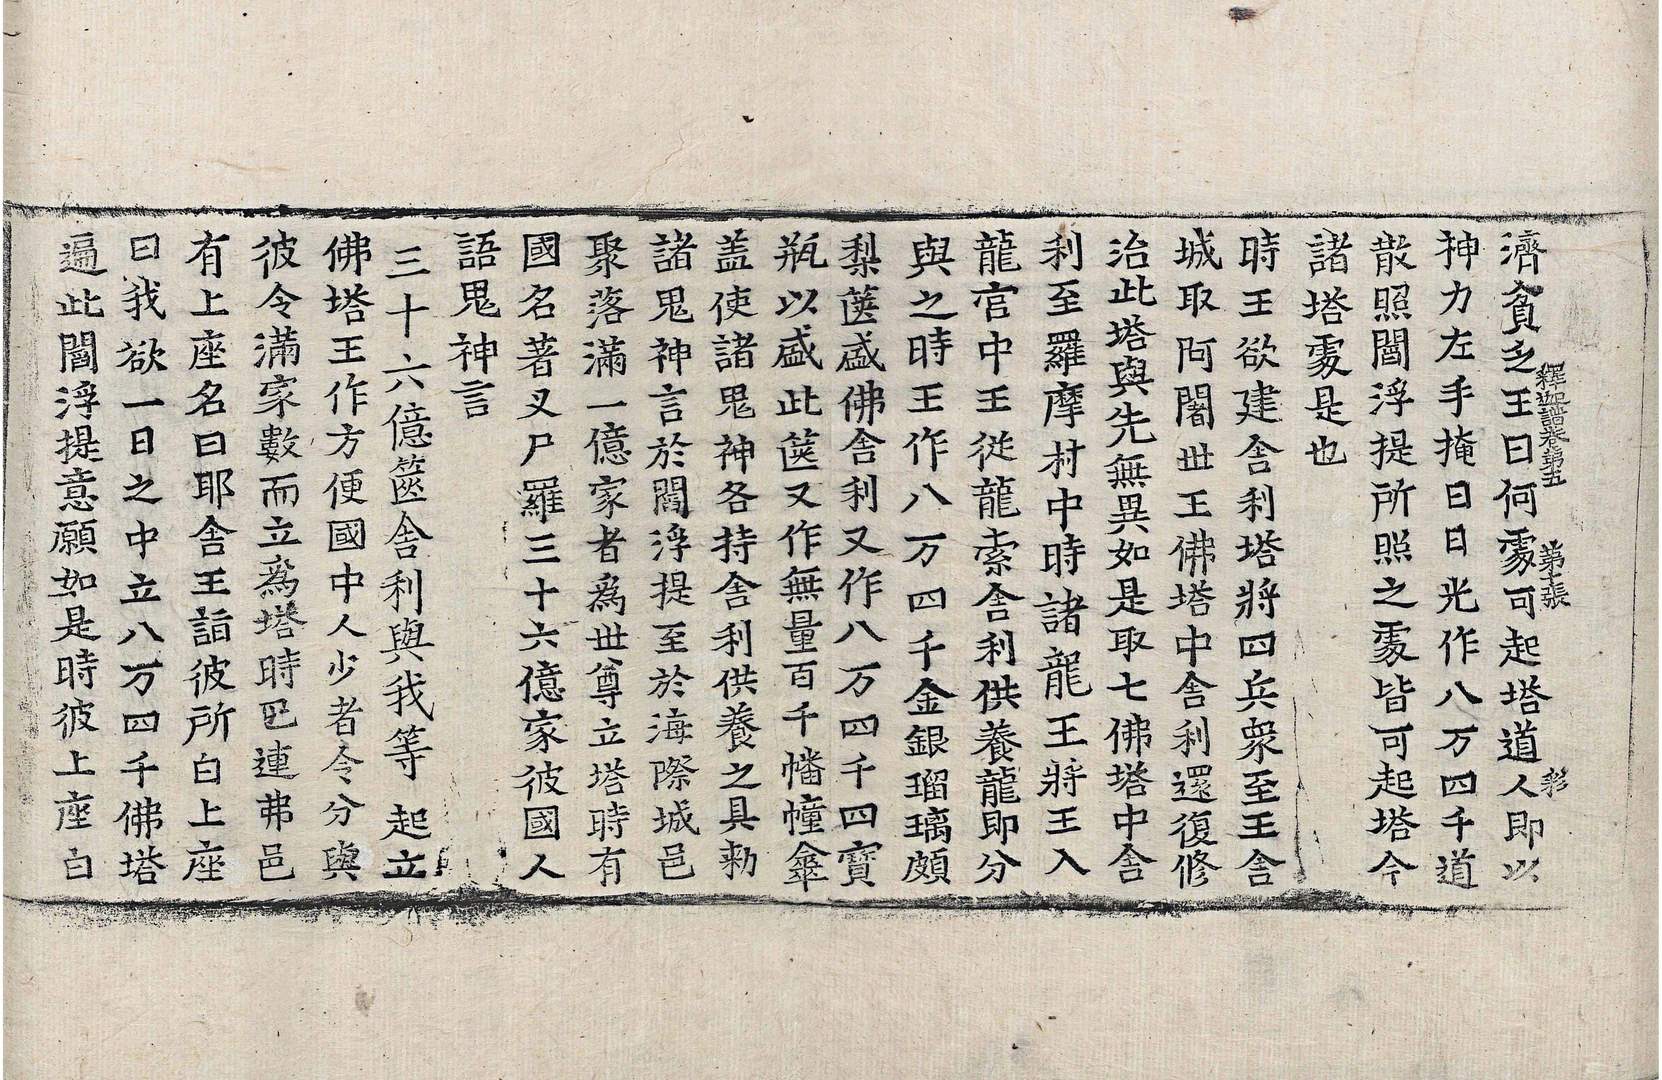 濟貧乏王曰何處可起塔道人即以
釋迦譜卷第五 第 張 彩
神力左手掩日日光作八万四千道
散照閻浮提所照之處皆可起塔今
諸塔處是也
時王欲建舍利塔將四兵衆至王舍
城取阿闍世王佛塔中舍利還復修
治此塔與先無異如是取七佛塔中舍
利至羅摩村中時諸龍王將王入
龍宮中王從龍索舍利供養龍即分
與之時王作八万四千金銀瑠璃頗
梨篋盛佛舍利又作八万四千四寶
瓶以盛此篋又作無量百千幡幢傘
盖使諸鬼神各持舍利供養之具勑
諸鬼神言於閻浮提至於海際城邑
聚落滿一億家者爲世尊立塔時有
國名著叉尸羅三十六億家彼國人
語鬼神言
三十六億篋舍利與我等起立
佛塔王作方便國中人少者令分與
彼令滿家數而立爲塔時巴連弗邑
有上座名曰耶舍王詣彼所白上座
曰我欲一日之中立八万四千佛塔
遍此閻浮提意願如是時彼上座白